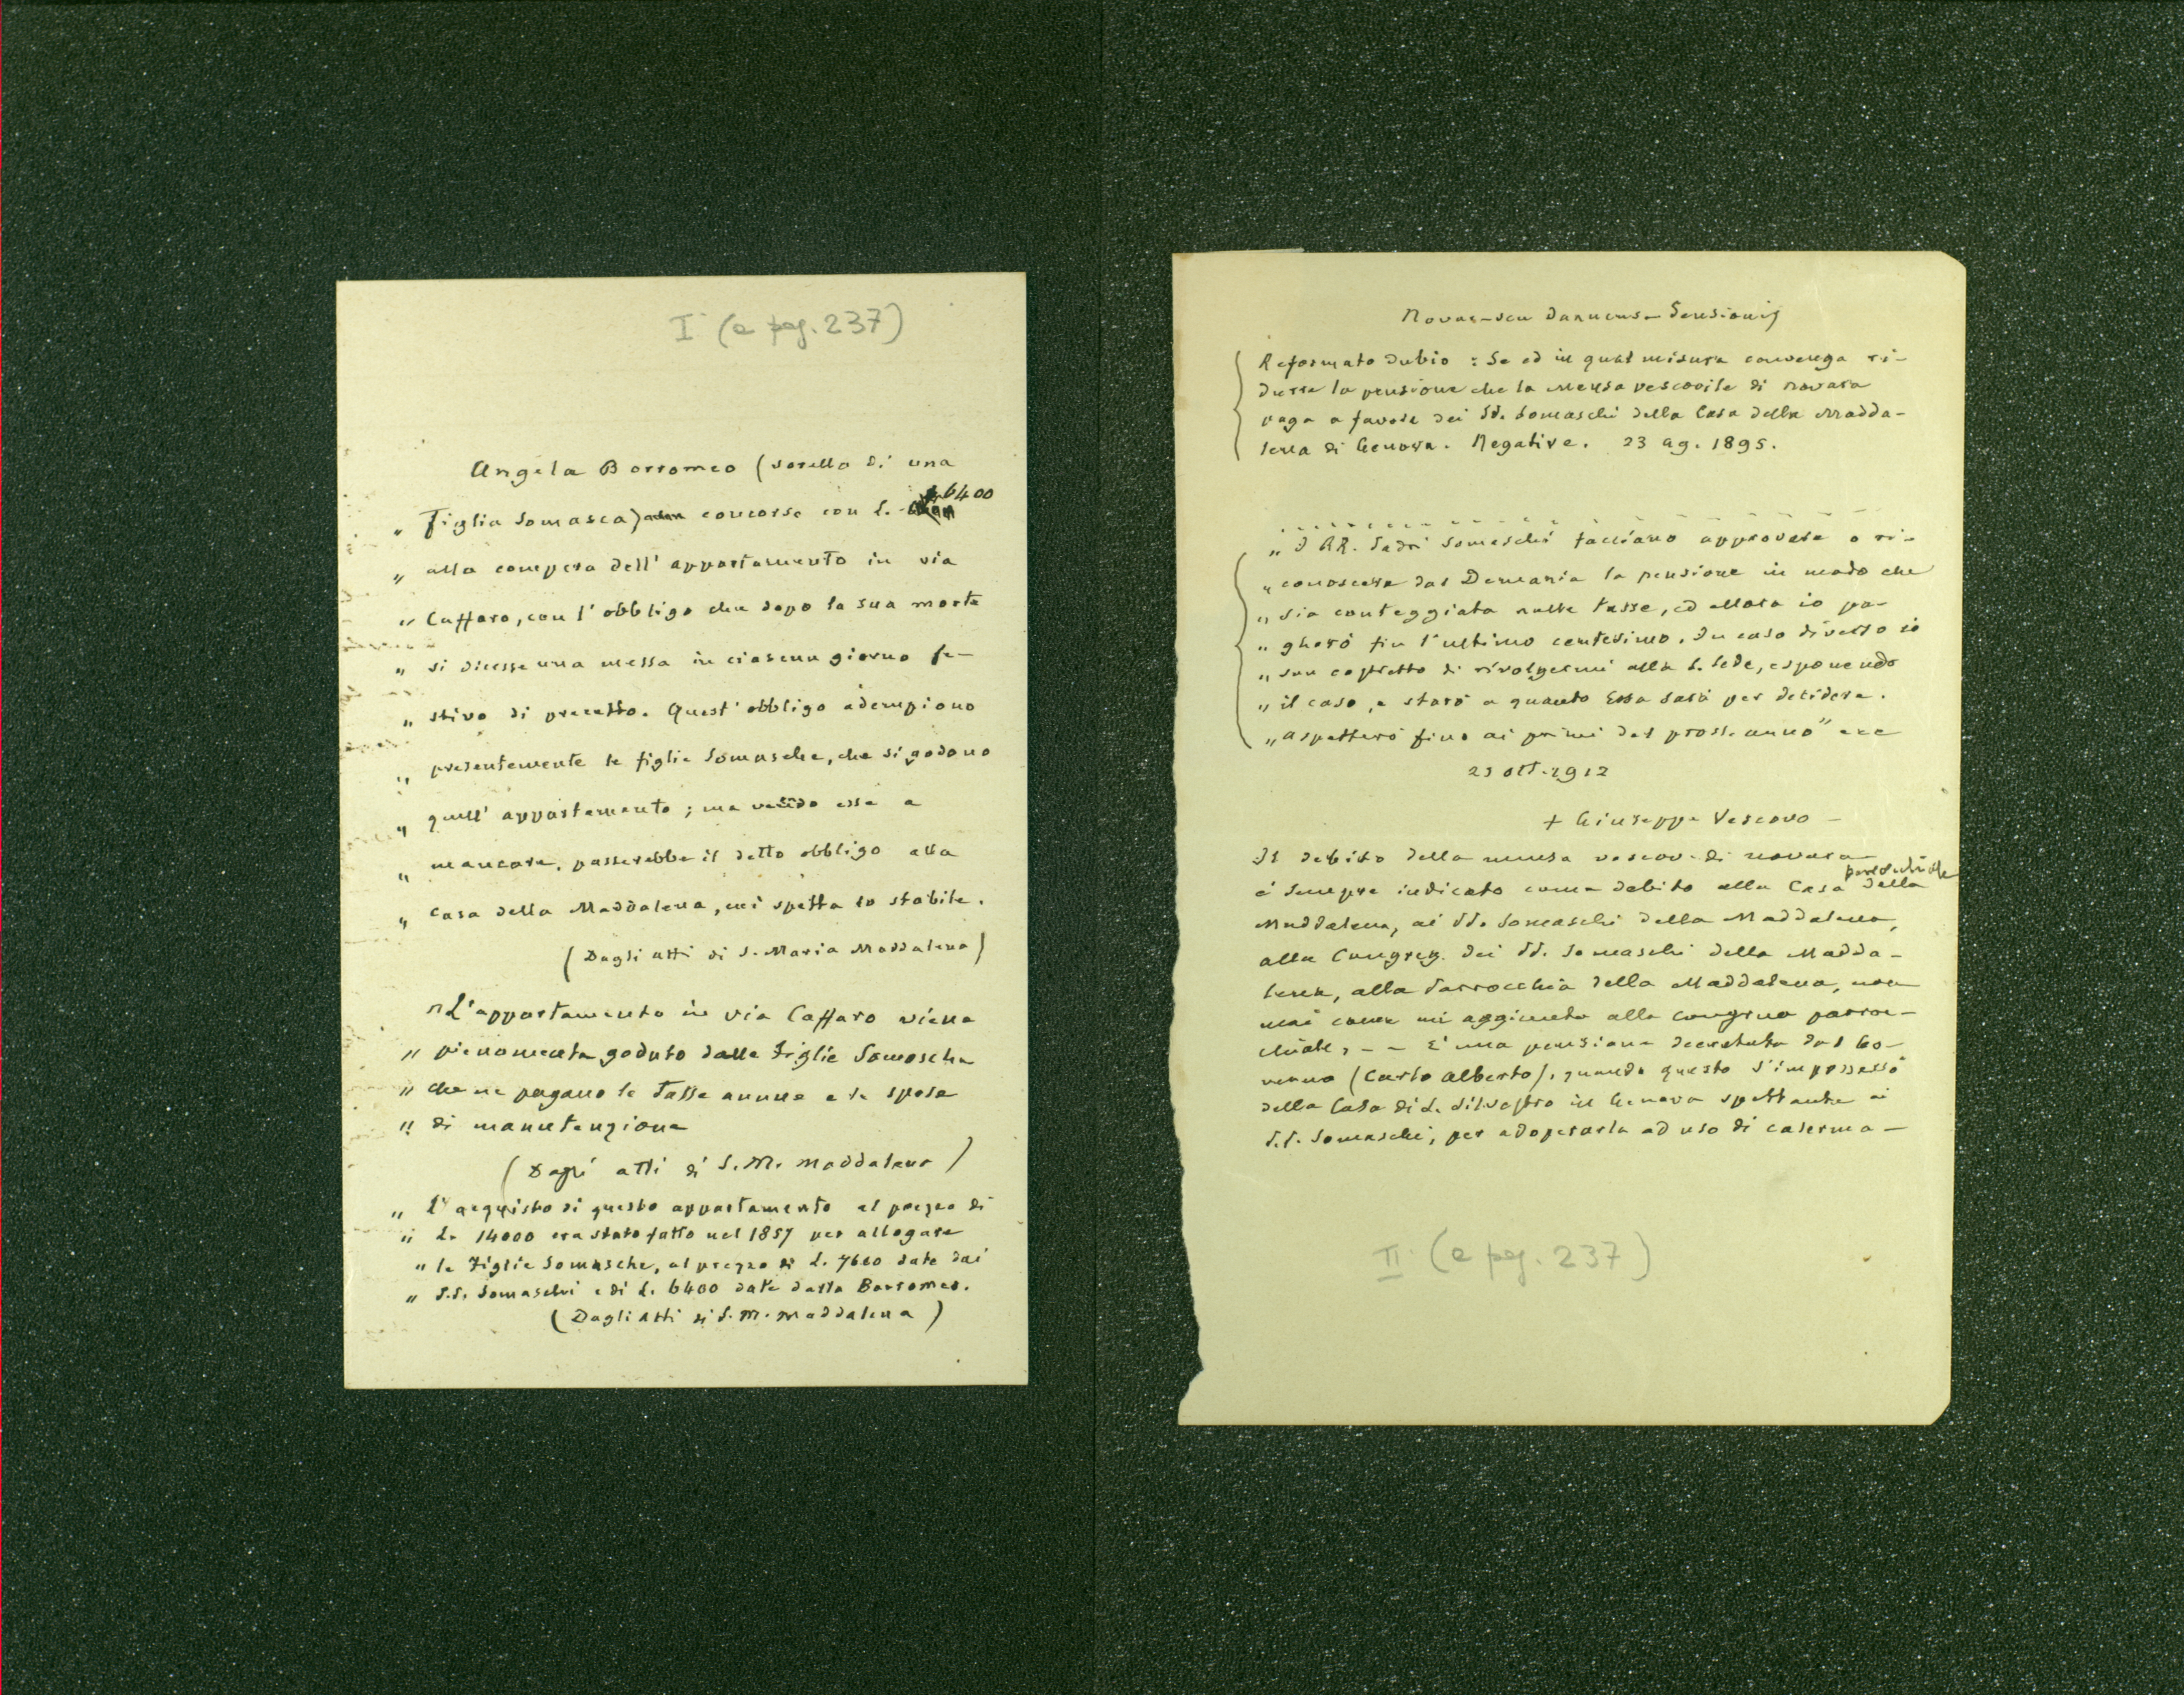 I (a pag. 237)
Angela Borromeo (sorella di una
" Figlia Somasca) concorse con L. 6400
" alla compera dell' appartamento in via
" Caffaro, con l' obbligo che dopo la sua morte
" si dicesse una messa in ciascun giorno fe-
" stivo di precetto. Quest' obbligo adempiono
" presentemente le figlie Somasche, che si godono
" quell' appartamento; ma venendo esse a
" mancare, passerebbe il detto obbligo alla
" Casa della Maddalena, cui spetta lo stabile.
(Dagli atti di S. Maria Maddalena)
" L'appartamento in via Caffaro viene
" pienamente goduto dalle Figlie Somasche
" che ne pagano le tasse annue e le spese
" di manutenzione
(Dagli atti di S. M. Maddalena)
" L'acquisto di questo appartamento al prezzo di
" L. 14000 era stato fatto nel 1857 per allogare
" le Figlie Somasche, al prezzo di L. 7600 date dai
" P.P. Somaschi e di L. 6400 date dalla Borromeo.
(Dagli atti di S. M. Maddalena)
Novar-seu Januens- Pensionis
Reformato dubio : Se ed in qual misura convenga ri-
durre la pensione che la Mensa vescovile di Novara
paga a favore dei PP. Somaschi della Casa della Madda-
lena di Genova. Negative. 23 ag. 1895.
" I RR. Padri Somaschi facciano approvare o ri-
" conoscere dal Demanio la pensione in modo che
" sia conteggiata nelle tasse, ed allora io pa-
" gherò fin l'ultimo centesimo. In caso diverso io
" son costretto di rivolgermi alla S. Sede, esponendo
" il caso, e starò a quanto Essa sarà per decidere.
" Aspetterò fino ai primi del pross. anno" ecc
23 ott. 1912
+ Giuseppe Vescovo -
Il debito della mensa vescov. di Novara
è sempre indicato come debito alla Casa parrocchiale della
Maddalena, ai PP. Somaschi della Maddalena,
alla Congreg. dei PP. Somaschi della Madda-
lena, alla Parrocchia della Maddalena, non
mai come un aggiunto alla congrua parroc-
chiale, - - E' una pensione decretata dal Go-
verno (Carlo Alberto), quando questo s'impossessò
della Casa di S. Silvestro in Genova spettante ai
P.P. Somaschi, per adoperarla ad uso di caserma -
II (a pag. 237)